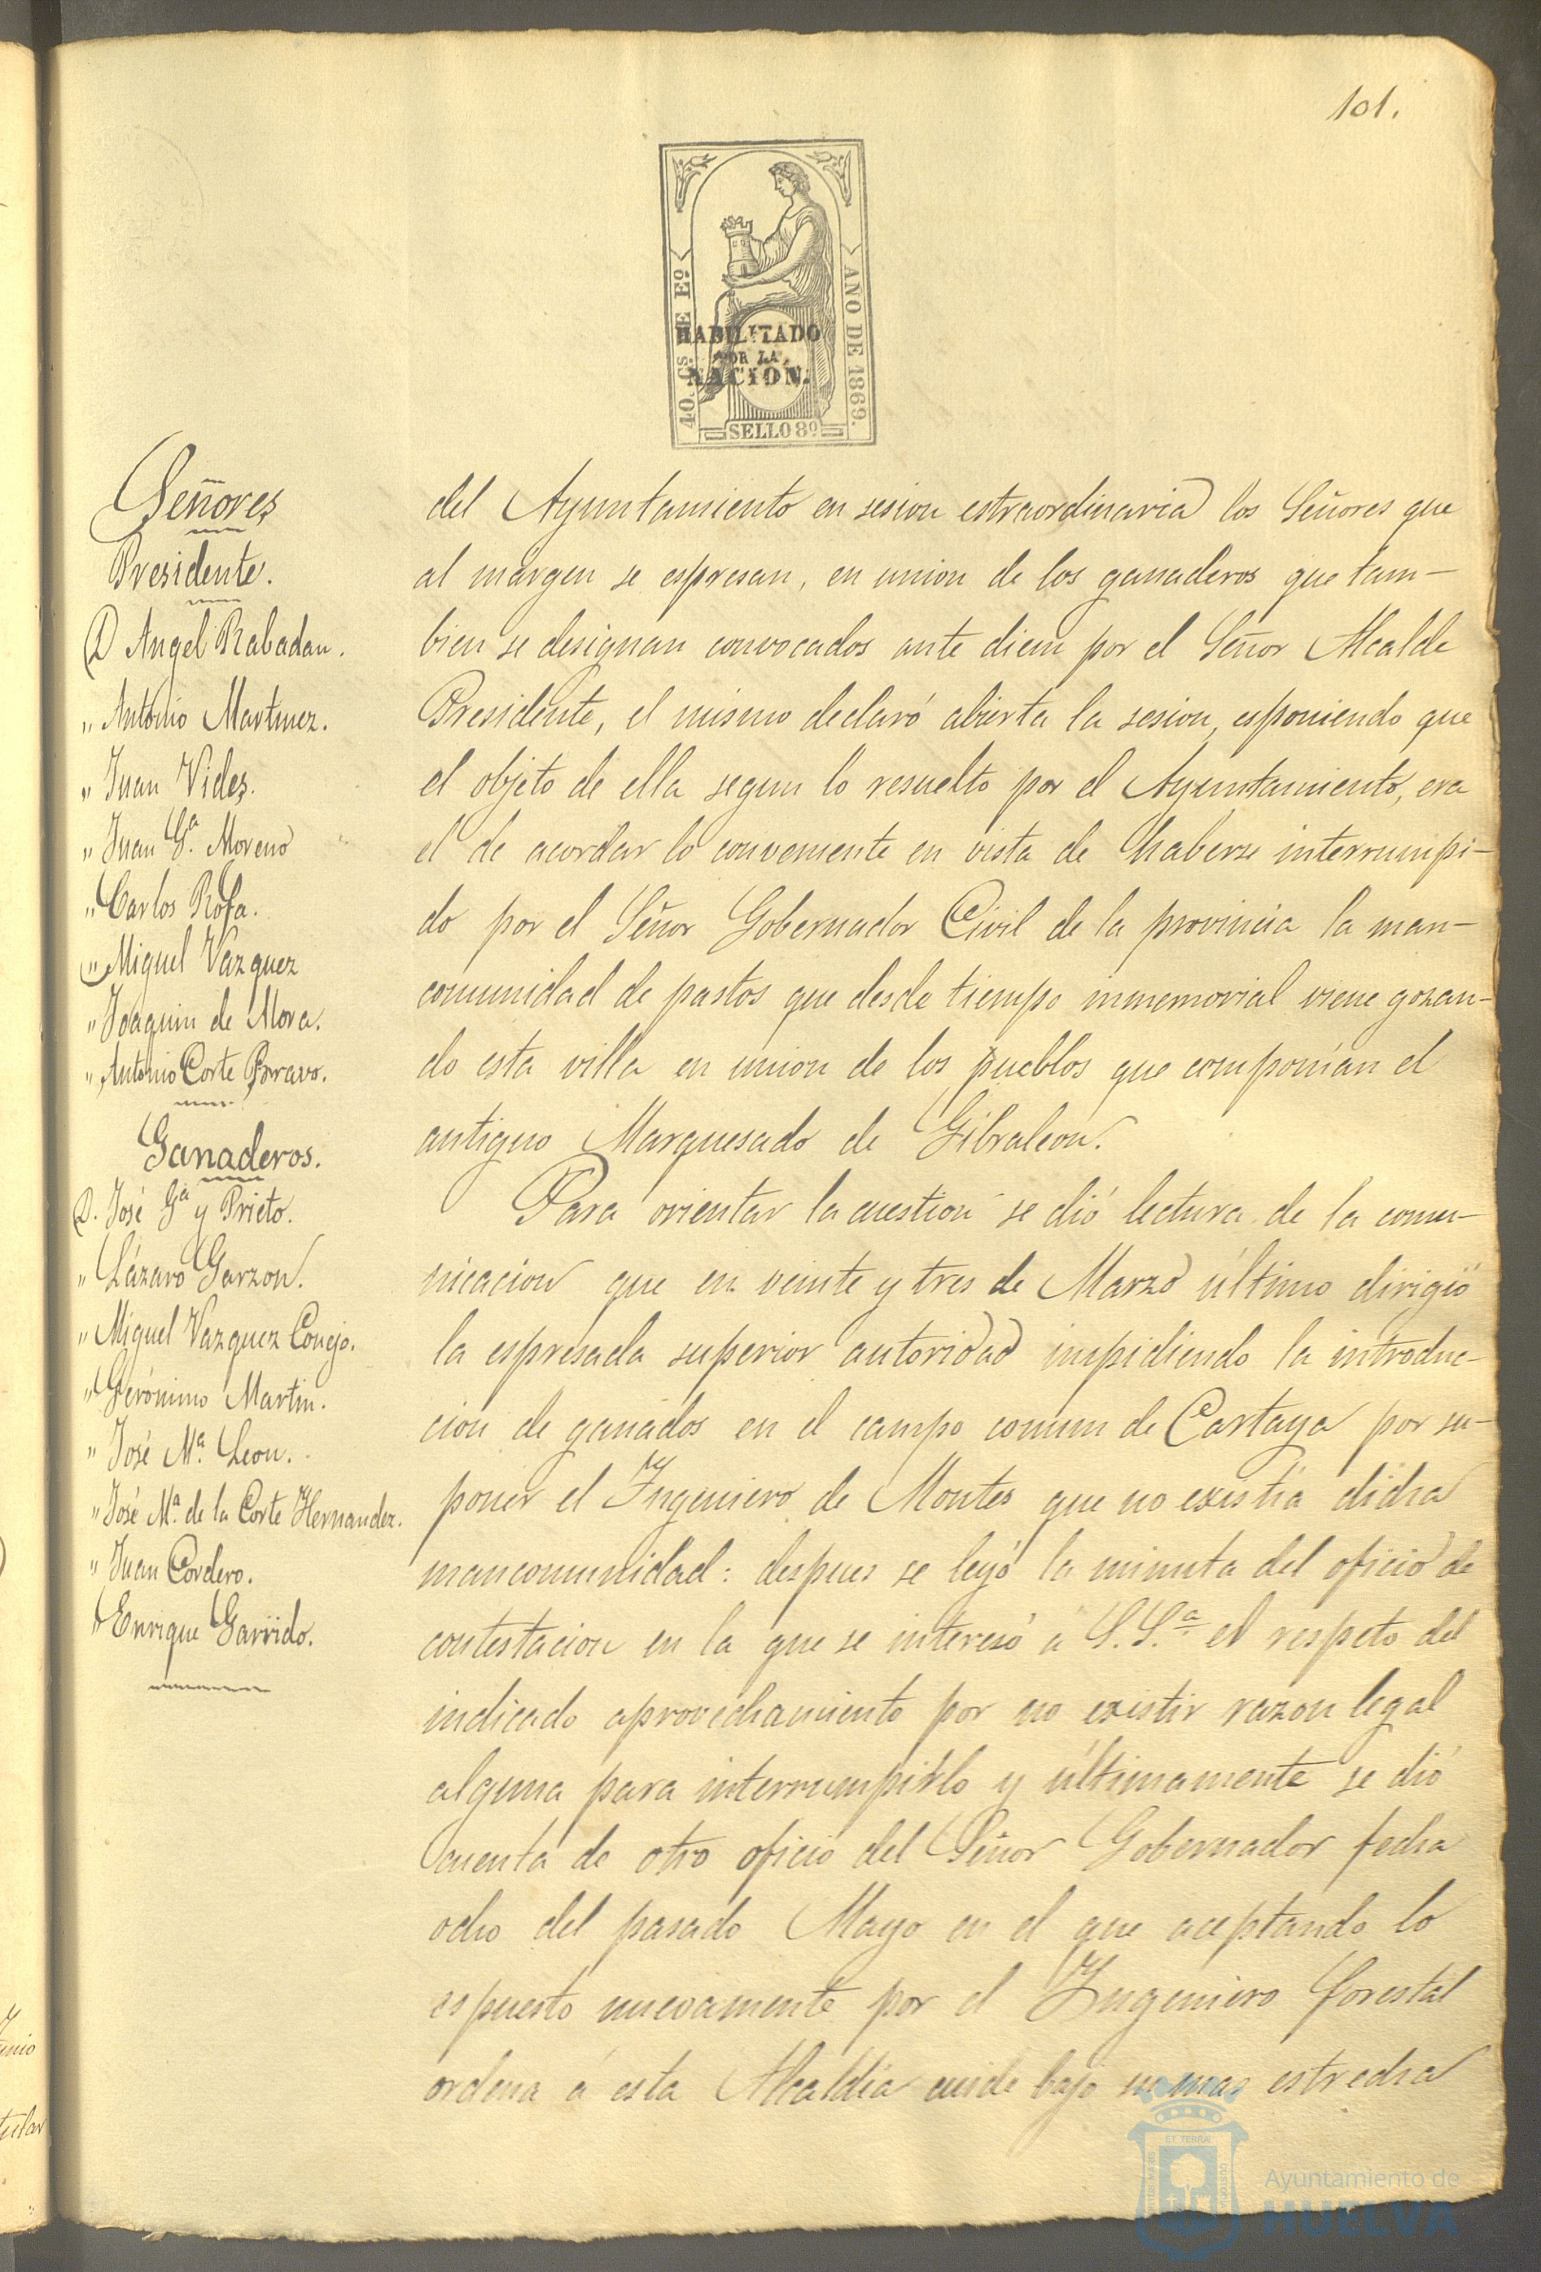 101.
40. CS. DE Eº
AÑO DE 1869.
HABILITADO
POR LA
NACION.
SELLO 8º
Señores
Presidente.
D Angel Rabadan.
" Antonio Martinez.
" Juan Vides.
" Juan Gª. Moreno
" Carlos Rofa.
" Miguel Vazquez
" Joaquin de Mora.
" Antonio Corte Bravo.
Ganaderos.
D. José Gª y Prieto.
" Lázaro Garzon.
" Miguel Vazquez Conejo.
" Gerónimo Martin.
" José Mª. Leon.
" José Mª. de la Corte Hernandez.
" Juan Cordero.
" Enrique Garrido.
del Ayuntamiento en sesion estraordinaria los Señores que
al margen se espresan, en union de los ganaderos que tam-
bien se designan convocados ante diem por el Señor Alcalde
Presidente, el mismo declaró abierta la sesion, esponiendo que
el objeto de ella segun lo resuelto por el Ayuntamiento, era
el de acordar lo conveniente en vista de haberse interrumpi-
do por el Señor Gobernador Civil de la provincia la man-
comunidad de pastos que desde tiempo inmemorial viene gozan-
do esta villa en union de los pueblos que componian el
antiguo Marquesado de Gibraleon.
Para orientar la cuestion se dió lectura de la comu-
nicacion que en veinte y tres de Marzo último dirigió
la espresada superior autoridad impidiendo la introduc-
cion de ganados en el campo comun de Cartaya por su-
poner el Ingeniero de Montes que no existia dicha
mancomunidad: despues se leyó la minuta del oficio de
contestacion en la que se interesó á S. S.ª el respeto del
indicado aprovechamiento por no existir razon legal
alguna para interrumpirlo y últimamente se dió
cuenta de otro oficio del Señor Gobernador fecha
ocho del pasado Mayo en el que aceptando lo
espuesto nuevamente por el Ingeniero forestal
ordena á esta Alcaldia cuide bajo su mas estrecha
Ayuntamiento de
HUELVA